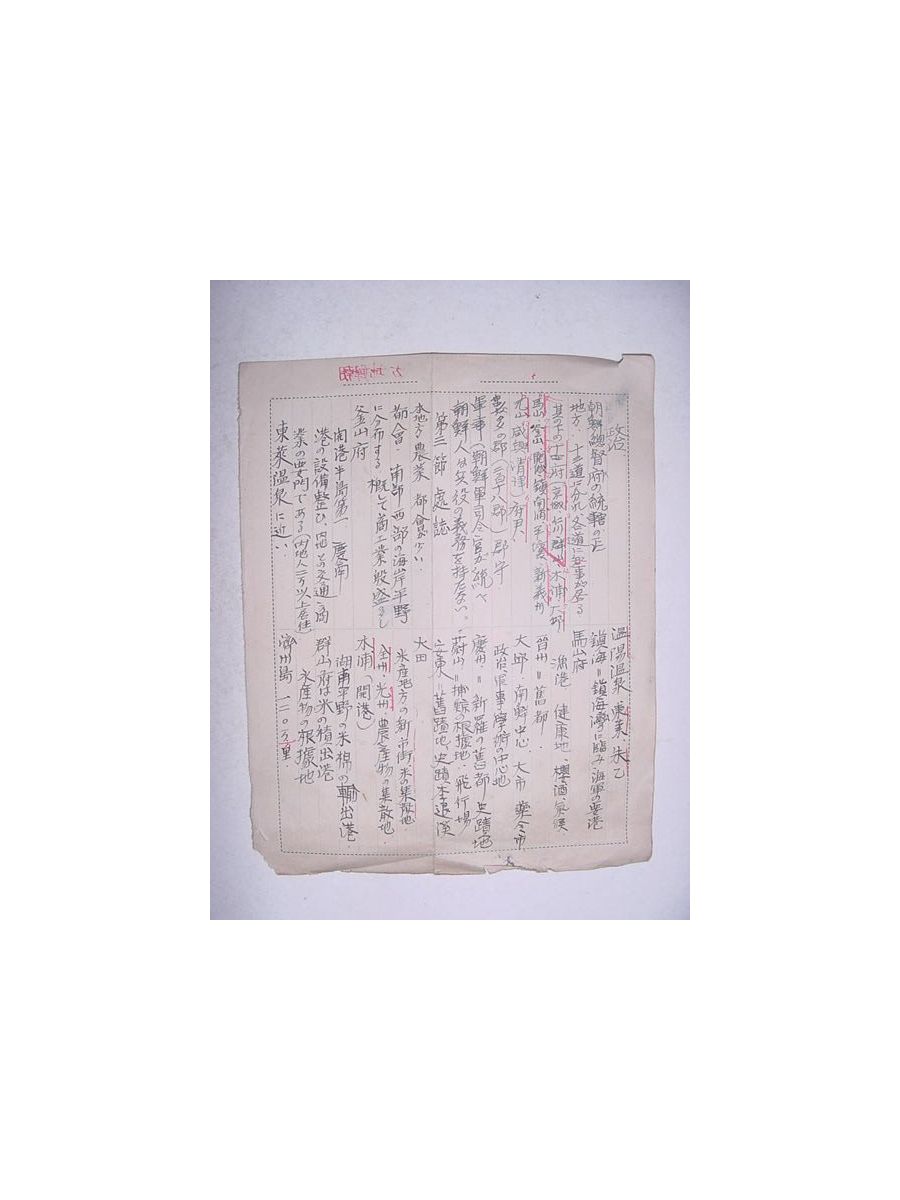 政治
朝鮮總督府の統轄の下
地方、十三道に分れ各道に知事が居る
其の下の十四府(京城 仁川 群山 木浦 大邱
馬山 釜山 開城 鎮南浦 平壤 新義州
元山 咸興 清津)府尹、
郡(二百十八郡)郡守
軍事(朝鮮軍司令官が統べ
朝鮮人は兵役の義務を持たない。
第三節 處誌
本地方農業 都會少い
都會 南部 西部の海岸平野
に分布する 概して商工業殷盛
釜山府
開港半島第一 慶南
港の設備整ひ、内地との交通 商
業の要門である(内地人二万以上居住)
東萊温泉に近い
温陽温泉、東萊、朱乙
鎮海=鎮海灣に臨み海軍の要港
馬山府
漁港 健康地、櫻 酒 氣候
晋州=舊都
大邱、南鮮中心 大市 藥令市
政治 軍事 學術の中心地
慶州=新羅の舊都 史蹟地
蔚山=捕鯨の根據地、飛行場
安東=舊蹟地 史蹟 李退溪
大田
米産地方の新市街、米の集散地
全州、光州 農産物の集散地
木浦(開港)
湖南平野の米棉の輸出港
群山府は米の積出港
水産物の根據地
濟州島 一二〇方里